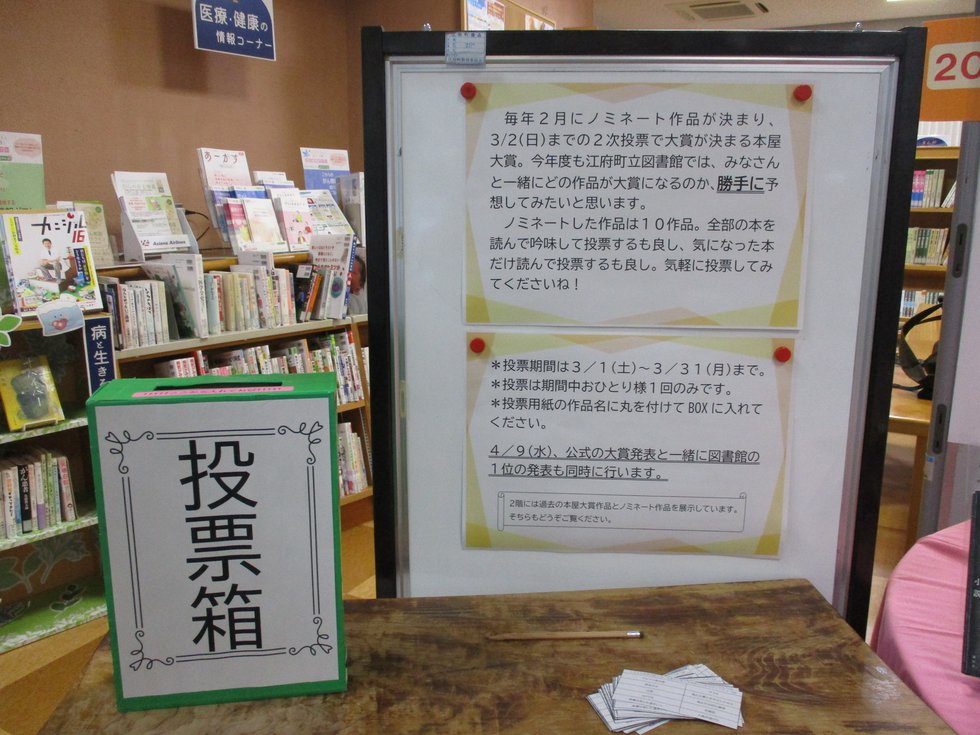 医療・健康の
情報コーナー
20
毎年２月にノミネート作品が決まり、
3/2(日)までの２次投票で大賞が決まる本屋
大賞。今年度も江府町立図書館では、みなさん
と一緒にどの作品が大賞になるのか、勝手に予
想してみたいと思います。
ノミネートした作品は１０作品。全部の本を
読んで吟味して投票するも良し、気になった本
だけ読んで投票するも良し。気軽に投票してみ
てくださいね！
＊投票期間は３／１(土)～３／３１(月)まで。
＊投票は期間中おひとり様１回のみです。
＊投票用紙の作品名に丸を付けて BOX に入れて
ください。
４／９(水)、公式の大賞発表と一緒に図書館の
１位の発表も同時に行います。
２階には過去の本屋大賞作品とノミネート作品を展示しています。
そちらもどうぞご覧ください。
投票箱
カジル
16
あーかす
病と生きる